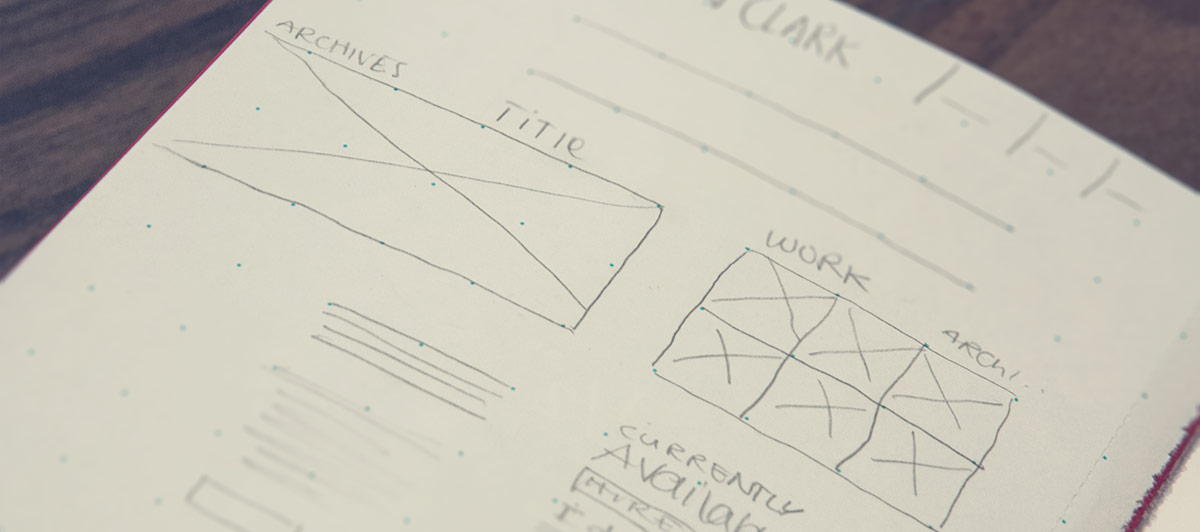 CLARK
ARCHIVES
TITLE
WORK
ARCHI...
CURRENTLY
AVAILAB
HIRE